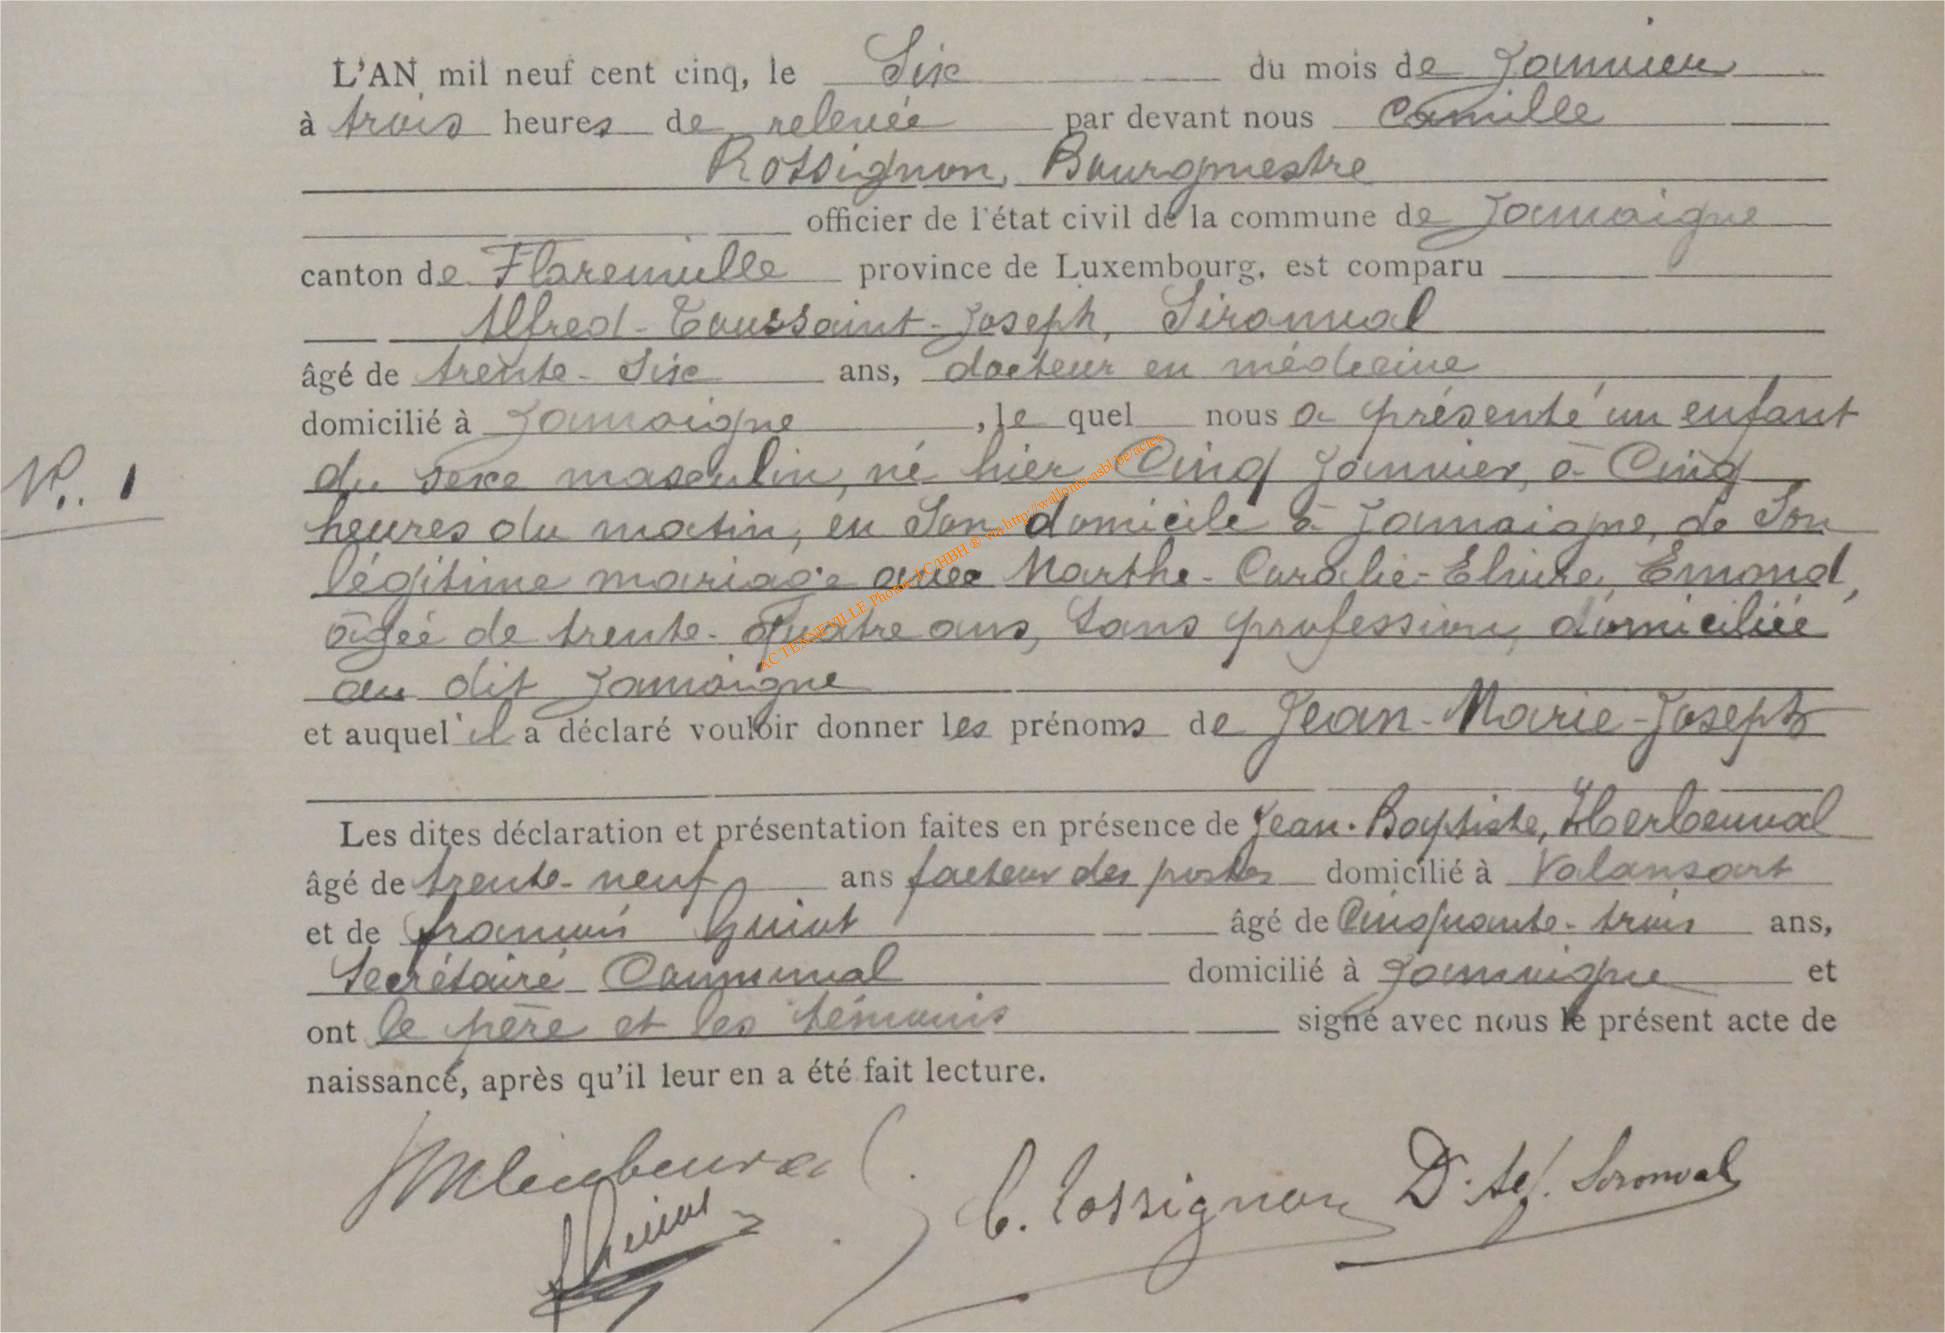 L'AN mil neuf cent cinq, le Six du mois de Janvier
à trois heures de relevée par devant nous Camille
Rossignon, Bourgmestre
officier de l'état civil de la commune de Jamoigne
canton de Florenville province de Luxembourg, est comparu
Alfred-Toussaint-Joseph, Sironval
âgé de trente-Six ans, docteur en médecine
domicilié à Jamoigne, le quel nous a présenté un enfant
N°. 1
du sexe masculin, né hier Cinq Janvier, à Cinq
heures du matin, en Son domicile à Jamoigne, de Son
légitime mariage avec Marthe-Coralie-Elvire, Emond,
âgée de trente-Quatre ans, Sans profession, domiciliée
au dit Jamoigne
et auquel il a déclaré vouloir donner les prénoms de Jean-Marie-Joseph
Les dites déclaration et présentation faites en présence de Jean-Baptiste,
âgé de trente-neuf ans facteur des postes domicilié à Valansart
et de françois Guiot âgé de Cinquante-trois ans,
Secrétaire Communal domicilié à Jamoigne et
ont le père et les témoins signé avec nous le présent acte de
naissance, après qu'il leur en a été fait lecture.
C. Rossignon Dr. Alf. Sironval